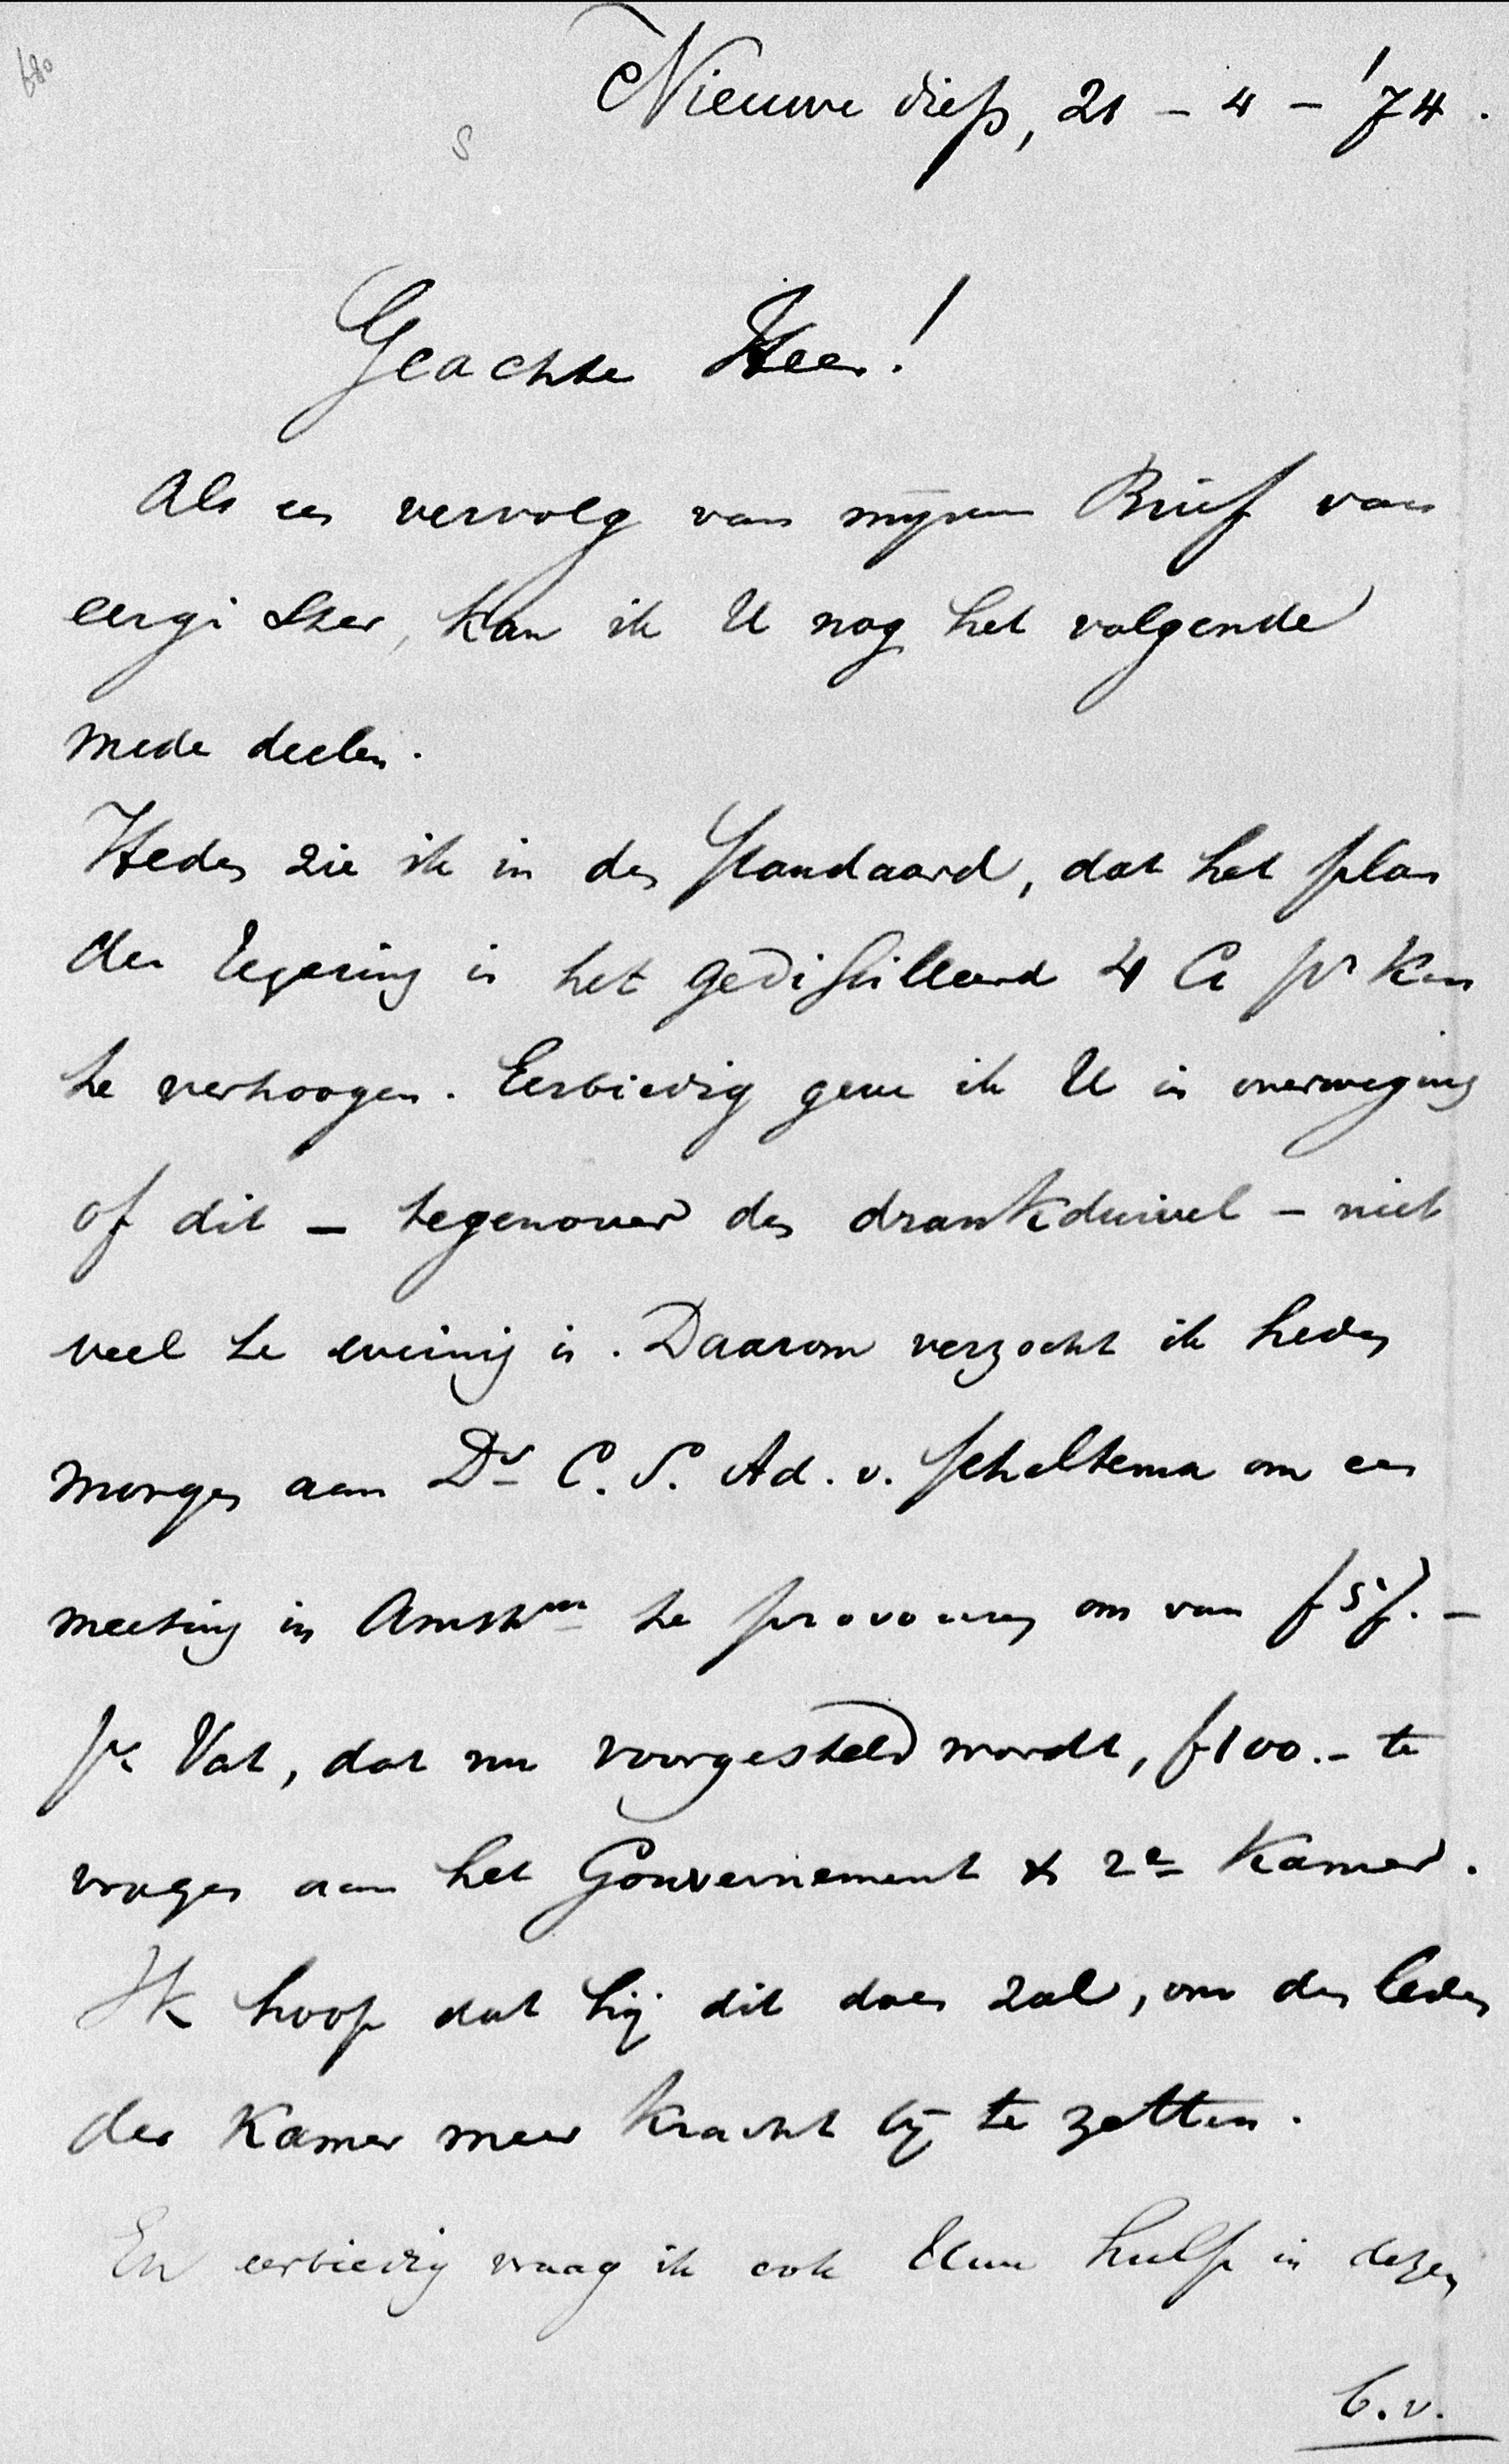 680
S
Nieuwe diep, 21 - 4 - '74.
Geachte Heer!
Als een vervolg van mijnen Brief van
eergisteren, kan ik U nog het volgende
mede deelen.
Heden zie ik in den Standaard, dat het plan
der regering is het gedistilleerd 4 Ct pr Kan
te verhoogen. Eerbiedig geve ik U in overweging
of dit - tegenover den drankduivel - niet
veel te weinig is. Daarom verzocht ik heden
morgen aan Dr C. S. Ad. v. Scheltema om een
meeting in Amstm te provoceren om van f 57.-
pr Vat, dat nu voorgesteld wordt, f 100.- te
vragen aan het Gouvernement & 2e Kamer.
Ik hoop dat hij dit doen zal, om den leden
der Kamer meer kracht bij te zetten.
En eerbiedig vraag ik ook Uwe hulp in dezen
b.v.